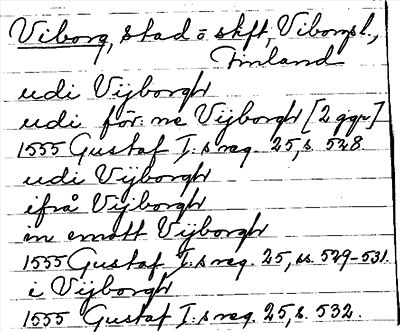 Viborg, stad o skft, Viborgsl.,
Finland
udi Vijborgh
udi för:ne Vijborgh [2 ggr]
1555 Gustaf I:s reg. 25, s. 528.
udi Vijborgh
ifrå Vijborgh
in emott Vijborgh
1555 Gustaf I:s reg. 25, ss. 529-531.
i Vijborgh
1555 Gustaf I:s reg. 25, s. 532.